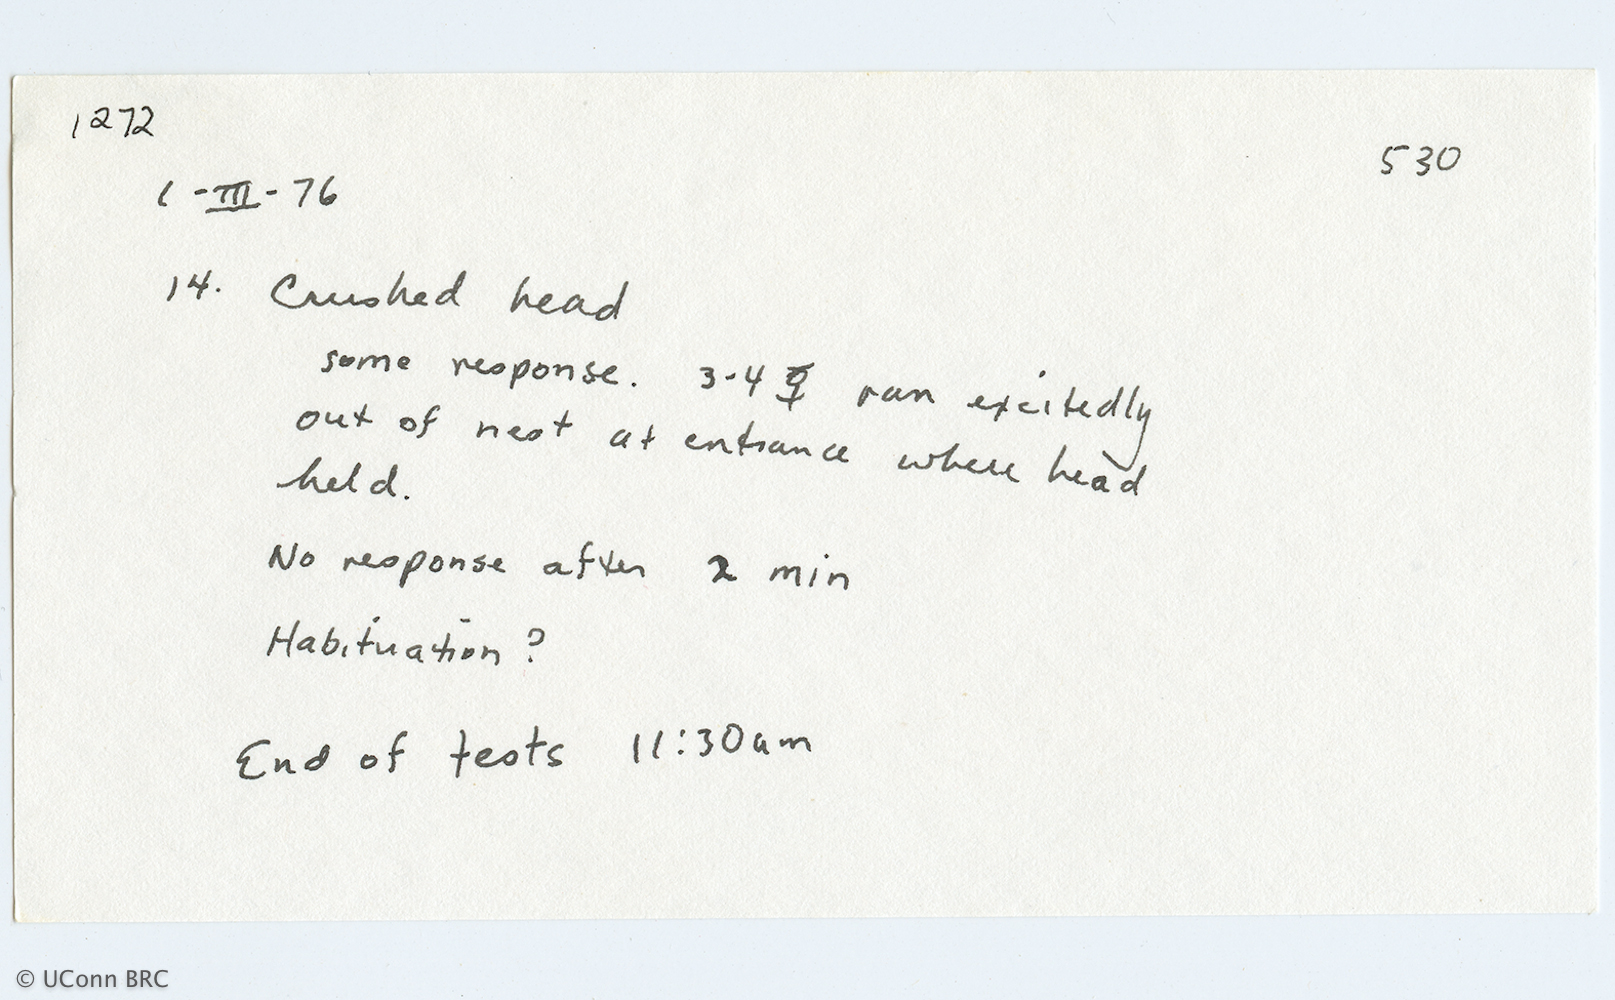 1272
530
1-III-76
14. Crushed head
some response. 3-4 ☿ ran excitedly
out of nest at entrance where head
held.
No response after 2 min
Habituation?
End of tests 11:30am
© UConn BRC